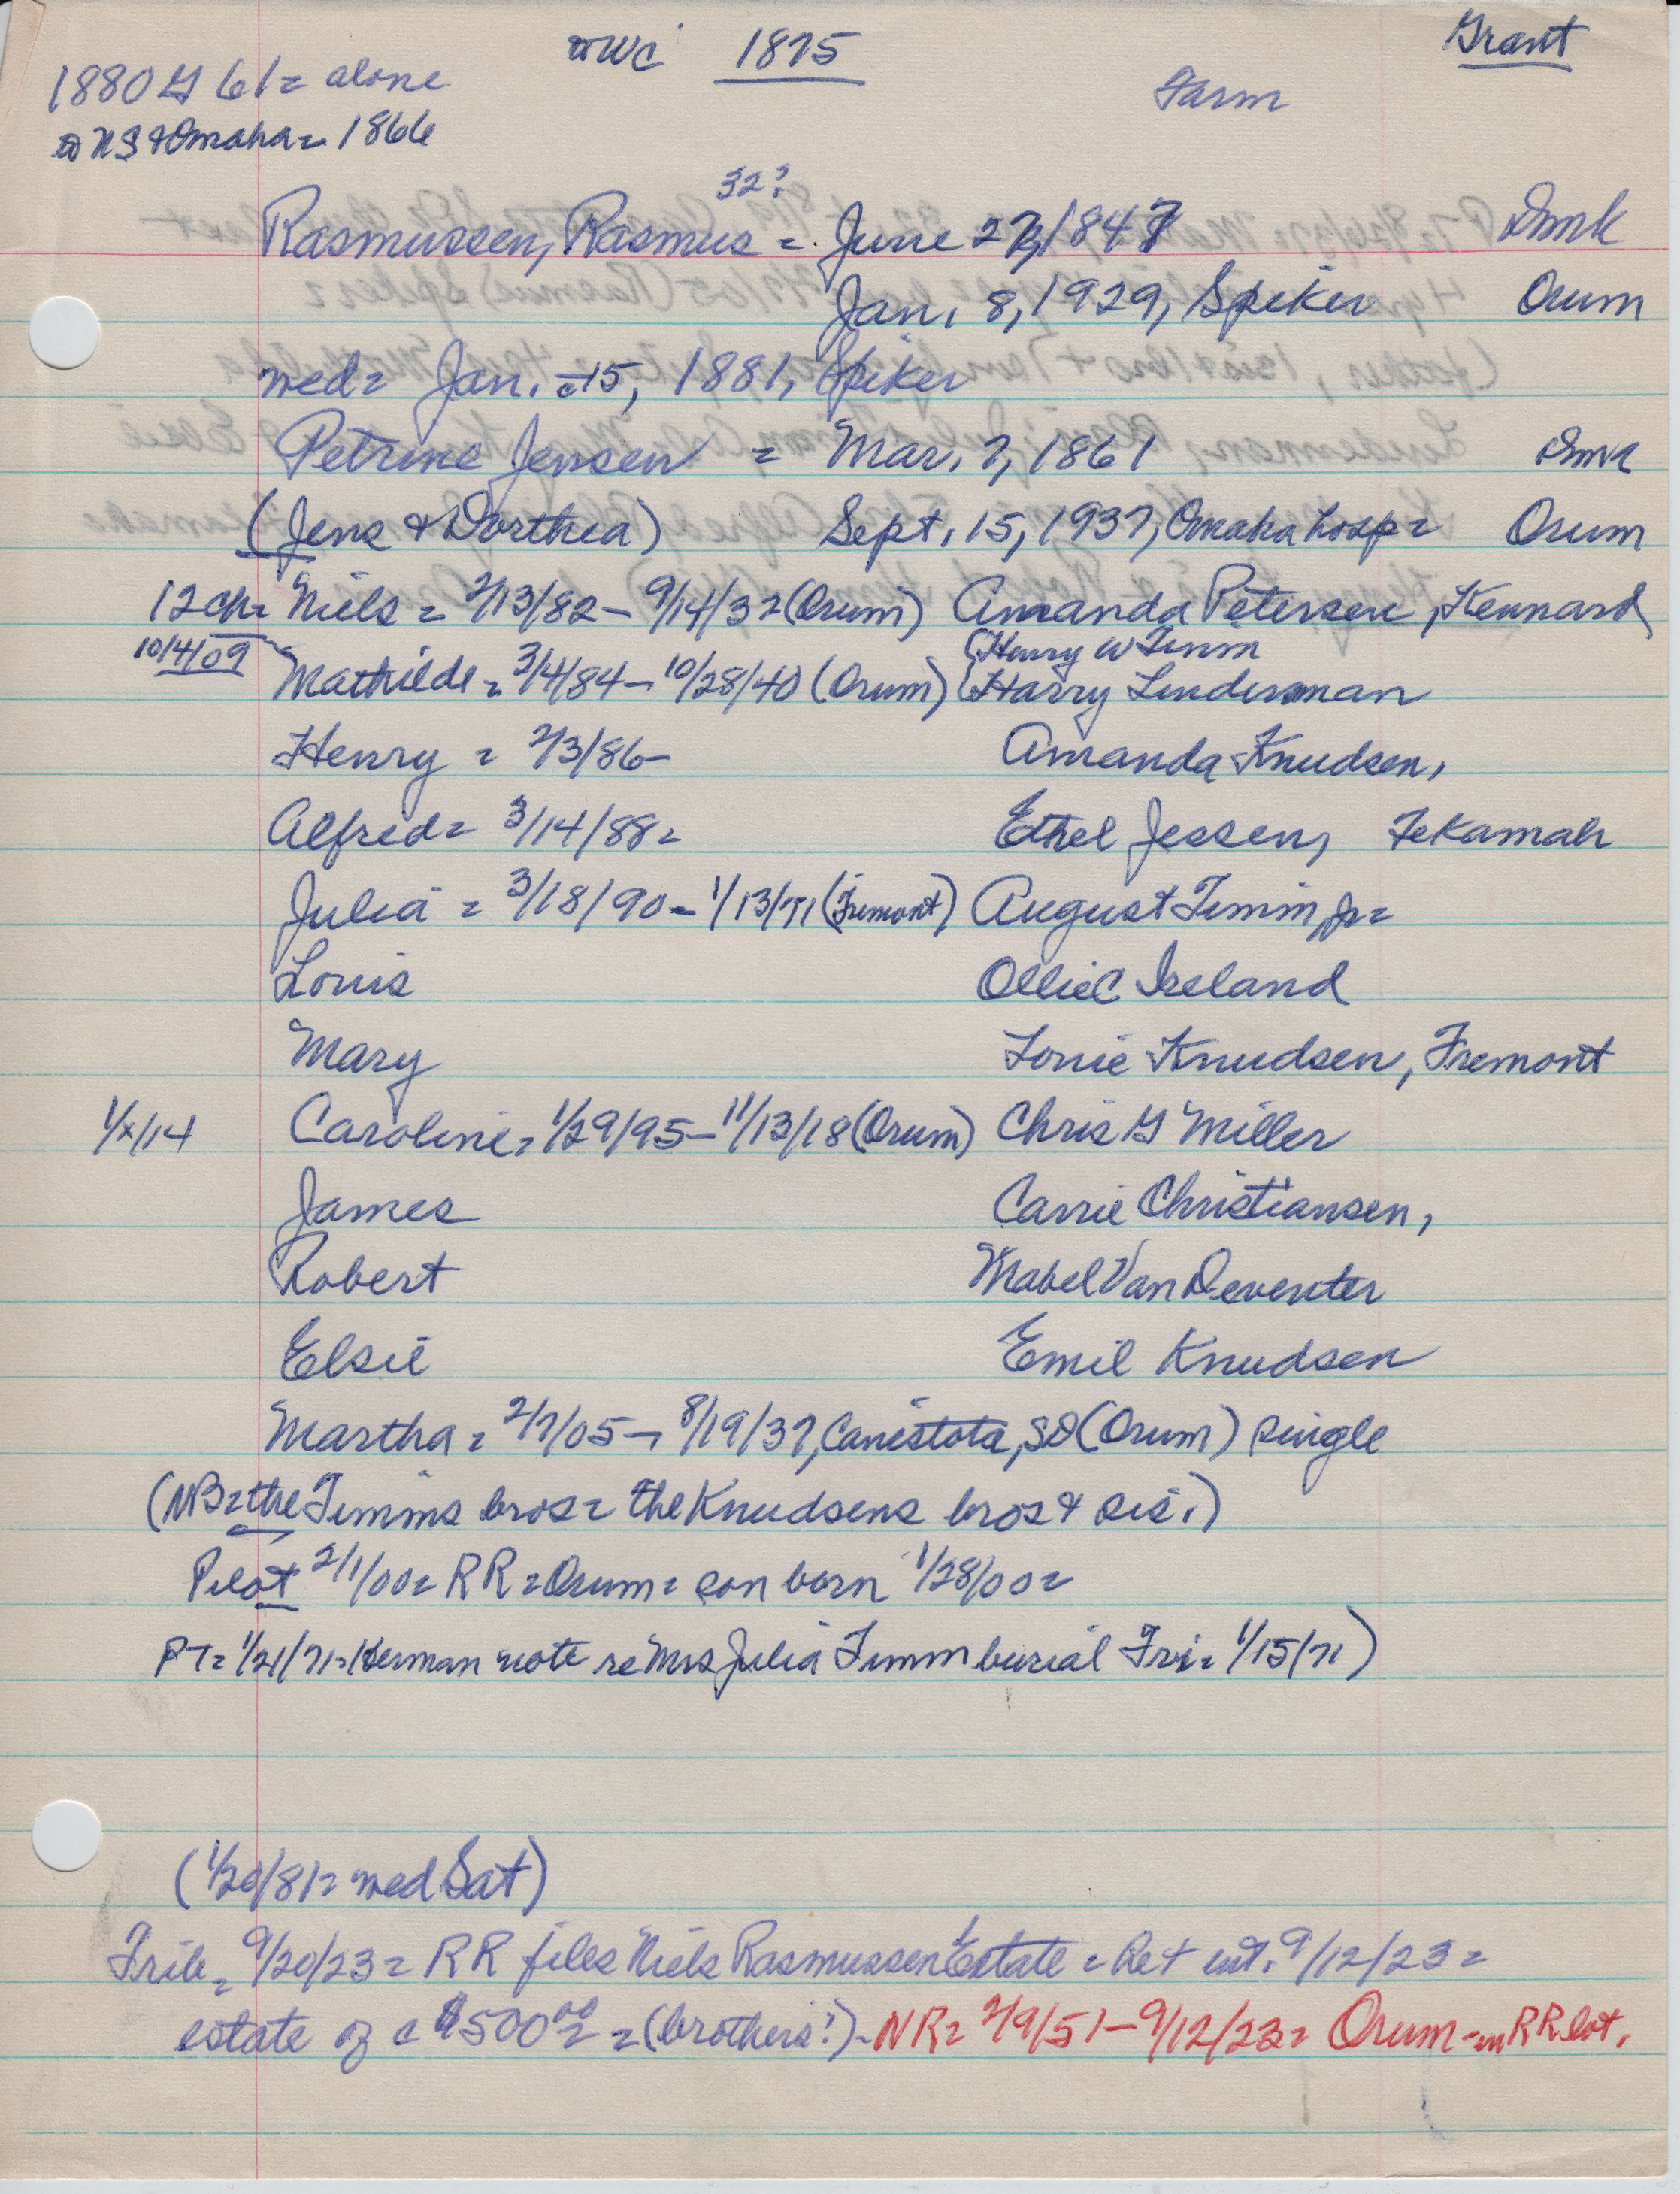 to WC 1875 Grant
1880 G 61 = alone Farm
to NS & Omaha = 1866
32?
Rasmussen, Rasmus = June 27, 1847 Dmk
Jan. 8, 1929, Spiker Orum
wed = Jan. c 15, 1881, Spiker
Petrine Jensen = Mar. 7, 1861 Dmk
(Jens & Dorthea) Sept. 15, 1937, Omaha hosp = Orum
12 ch = Niels = 2/13/82 – 9/14/37 (Orum) Amanda Petersen, Kennard
10/4/09 (Henry W Timm
Mathilde = 3/4/84 – 10/28/40 (Orum) (Harry Linderman
Henry = 2/3/86 – Amanda Knudsen,
Alfred = 3/14/88 = Ethel Jessen, Tekamah
Julia = 3/18/90 – 1/13/71 (Fremont) August Timm Jr =
Louis Ollie C Ireland
Mary Louie Knudsen, Fremont
1/x/14 Caroline = 1/29/95 – 11/13/18 (Orum) Chris G Miller
James Carrie Christiansen,
Robert Mabel Van Deventer
Elsie Emil Knudsen
Martha = 2/7/05 – 8/19/37, Canistota, SD (Orum) single
(NB = the Timms bros = the Knudsens bros & sis.)
Pilot 2/1/00 = RR = Orum = son born 1/28/00 =
PT = 1/21/71 = Herman note re Mrs Julia Timm burial Fri = 1/15/71)
(1/20/81 = wed Sat)
Trib = 9/20/23 = RR files Niels Rasmussen Estate = Ret int. 9/12/23 =
estate of c $500.00 = (brothers?) – NR = 2/9/51 – 9/12/23 = Orum – in RR lot.